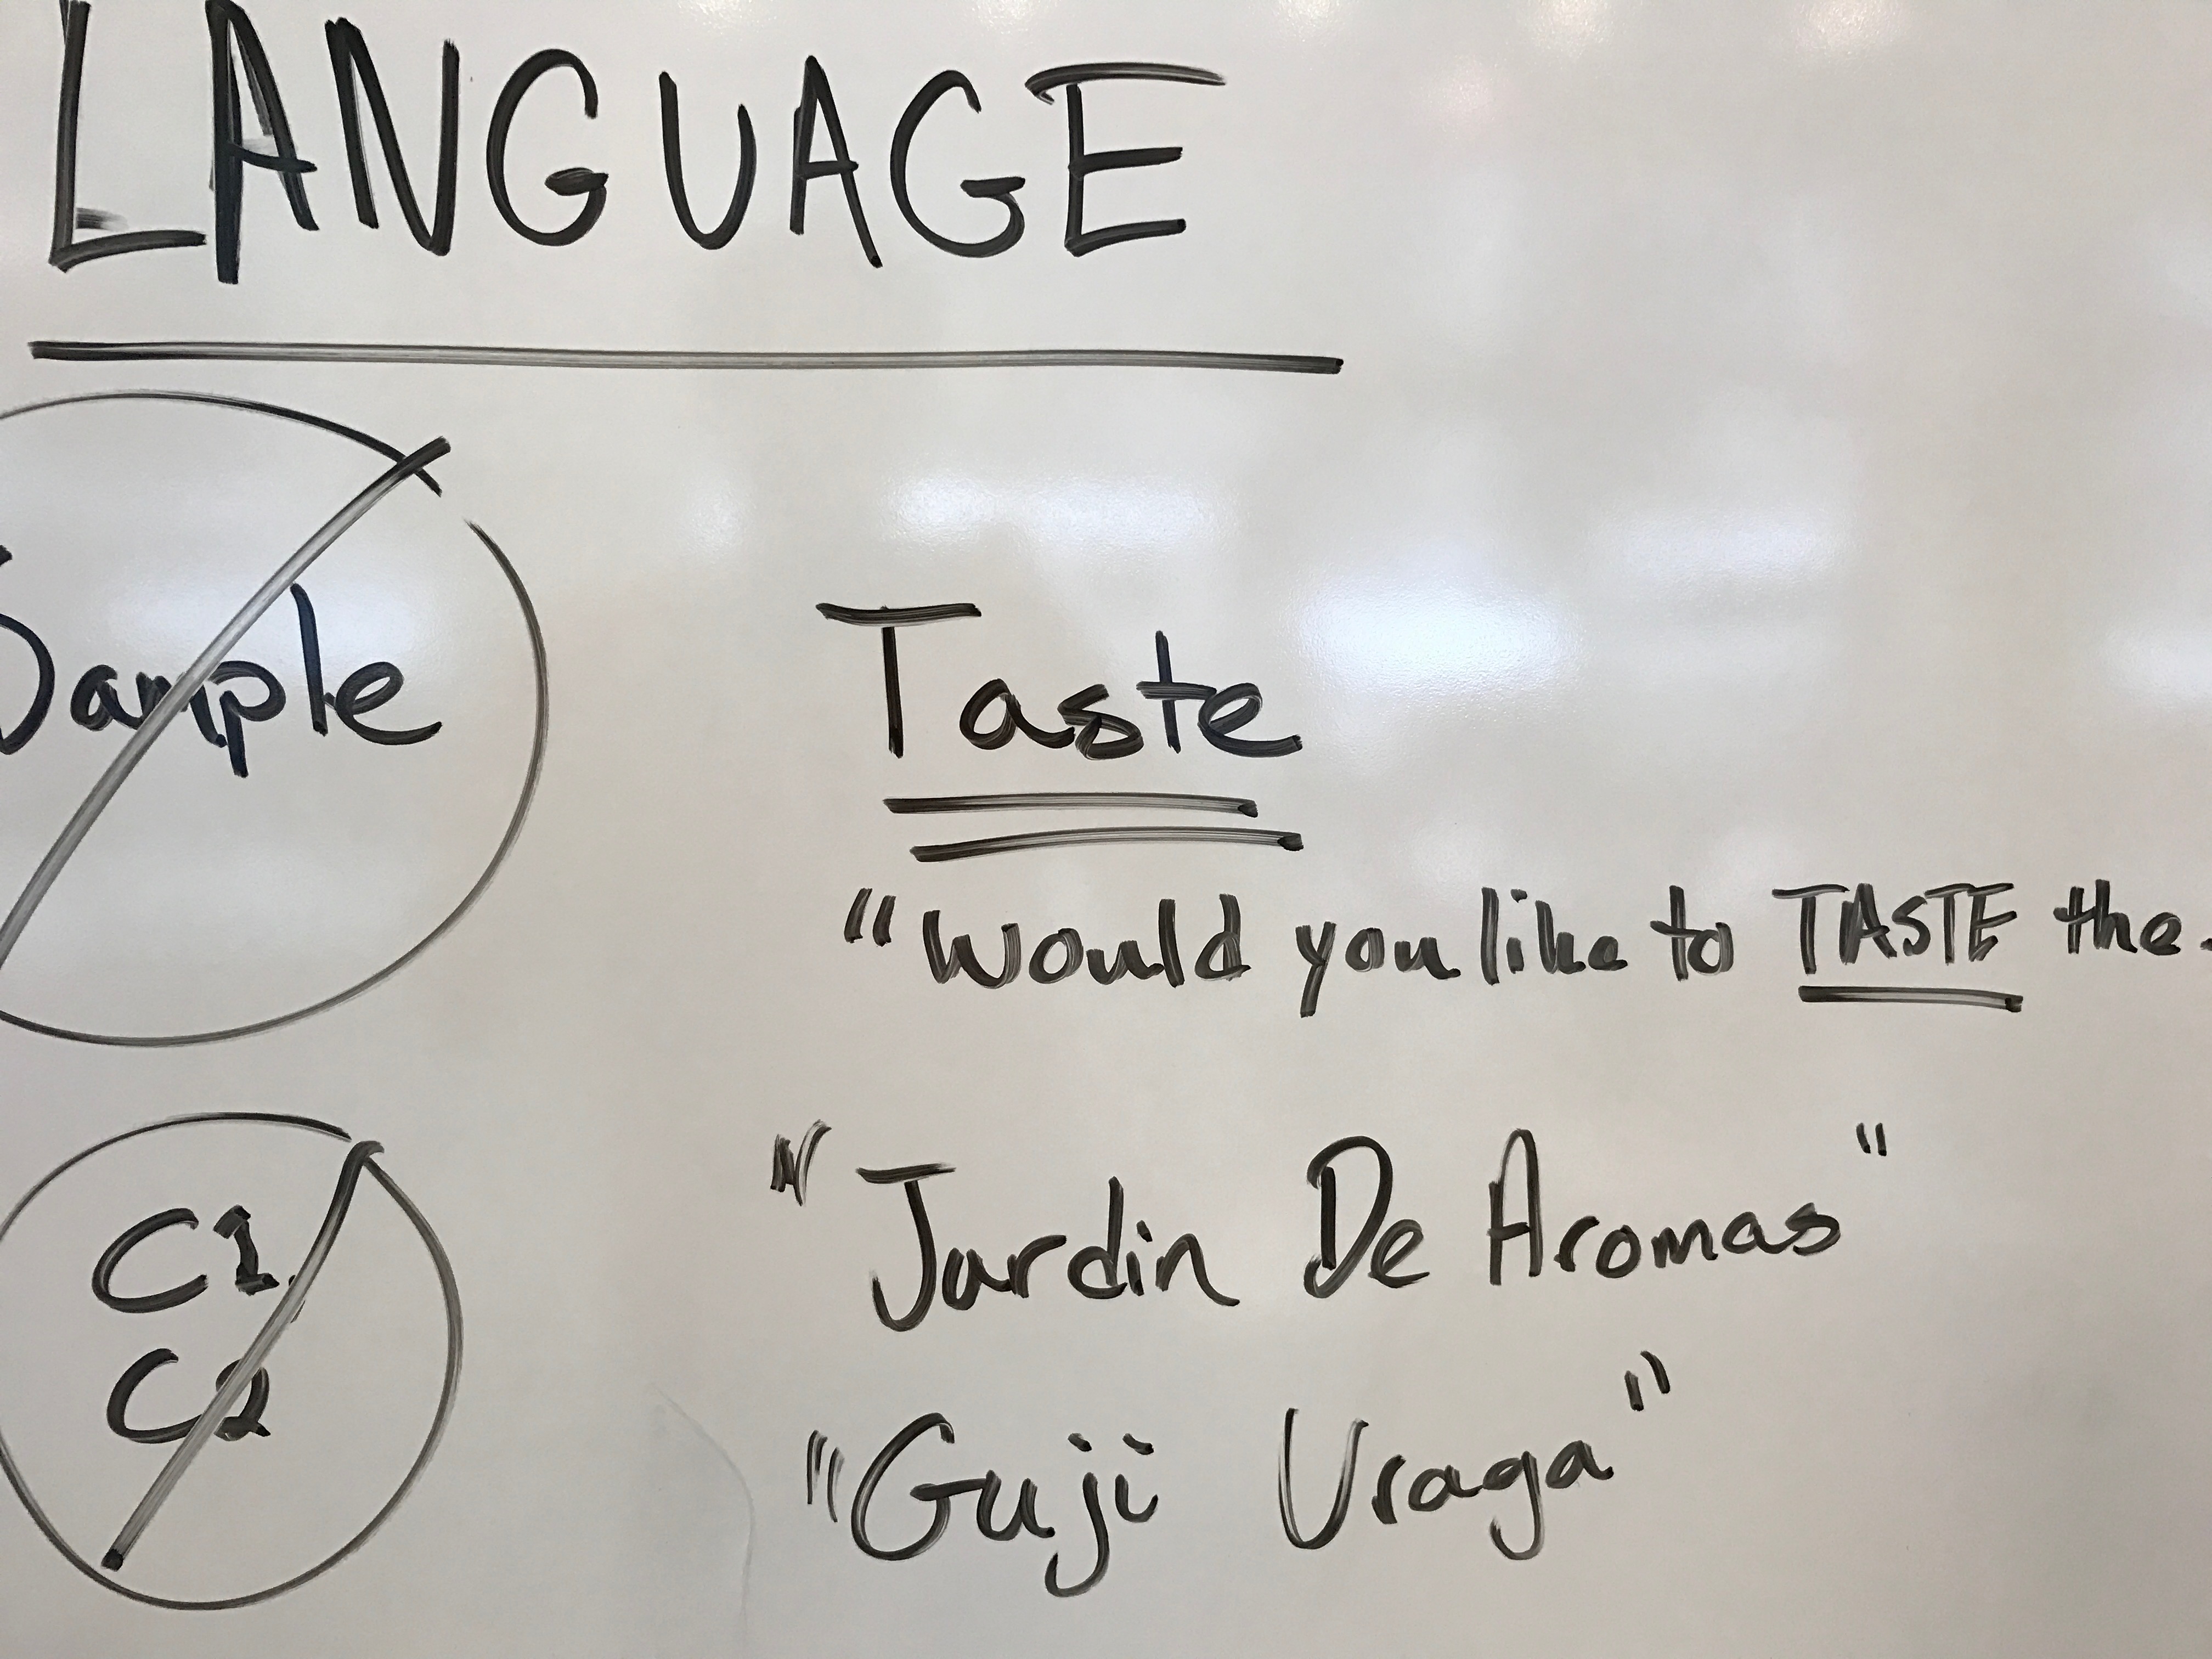 LANGUAGE
Sample
Taste
"Would you like to TASTE the.
C1
C2
"Jardin De Aromas"
"Guji Uraga"